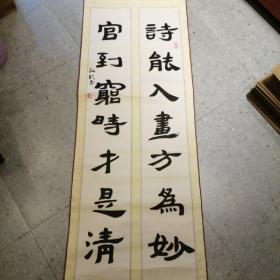 詩能入畫方為妙
官到窮時才是清